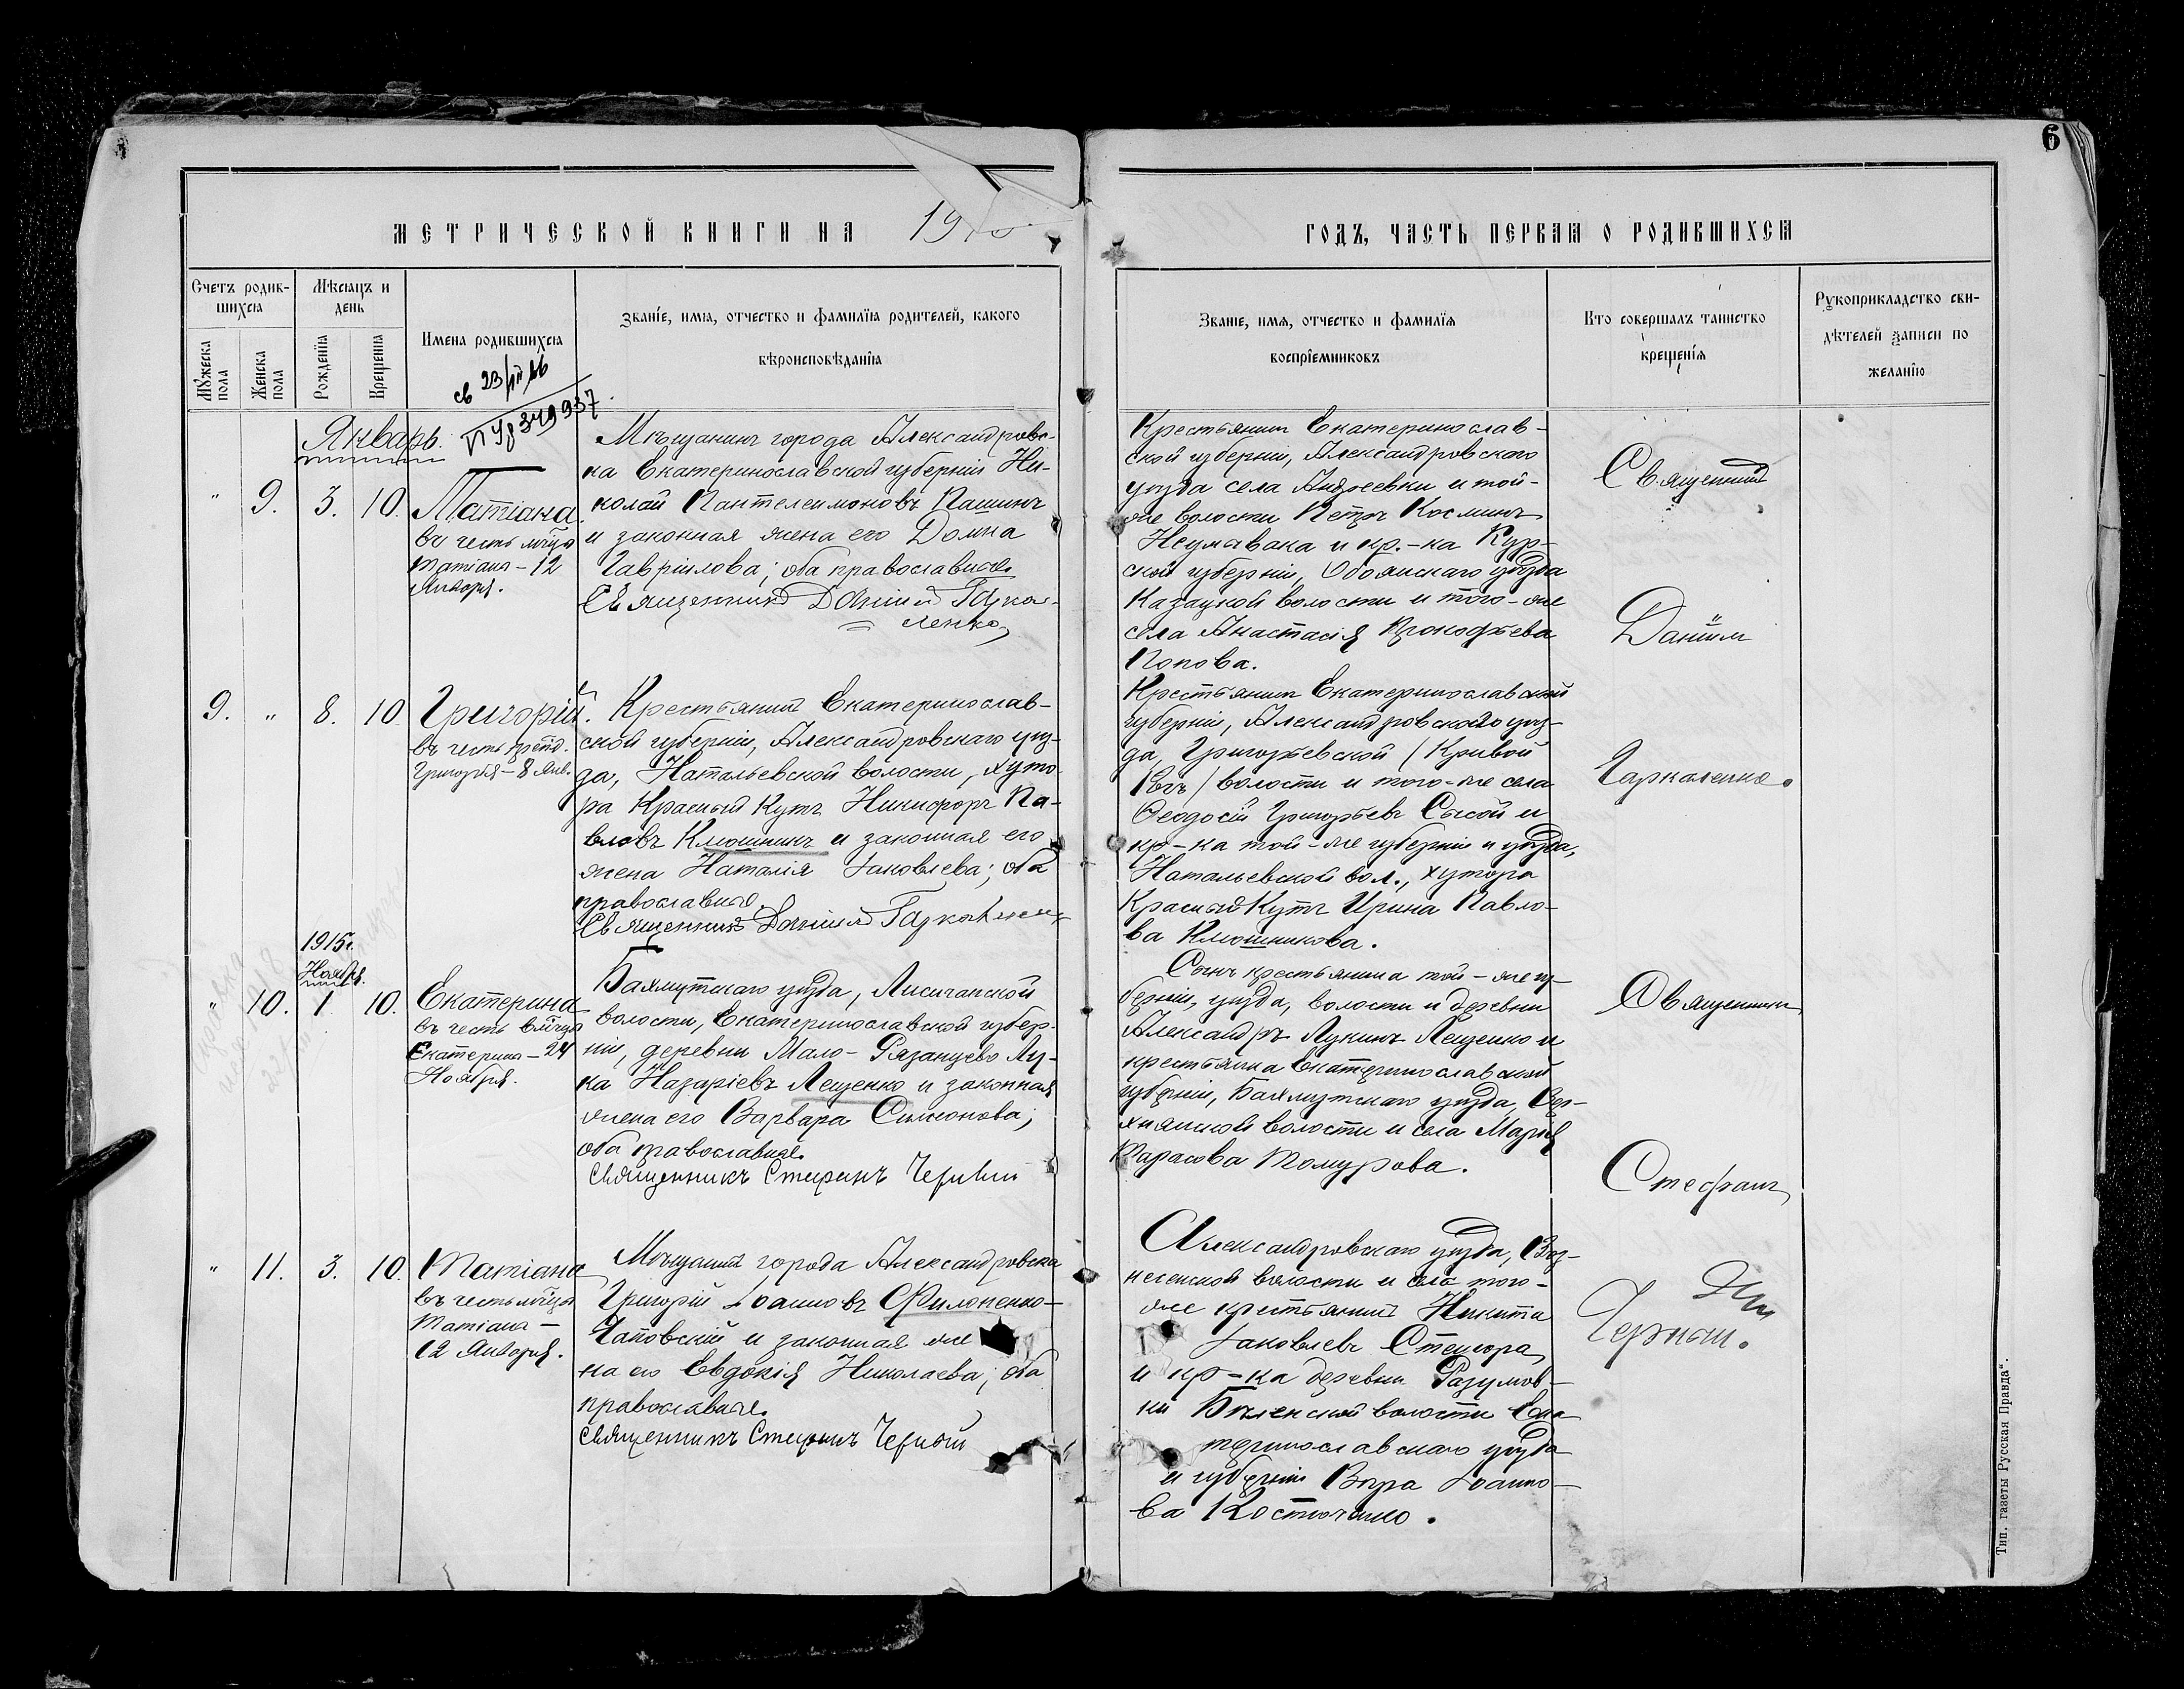 6
МЕТРИЧЕСКОЙ КНИГИ НА 19
ГОДЪ, ЧАСТЬ ПЕРВАЯ О РОДИВШИХСЯ
Счетъ родив-
шихся
Мужеска пола
Женска пола
Мѣсяцъ и
день
Рожденія
Крещенія
Имена родившихся
Званіе, имя, отчество и фамилія родителей, какого
вѣроисповѣданія
Званіе, имя, отчество и фамилія
воспріемниковъ
Кто совершалъ таинство
крещенія
Рукоприкладство сви-
дѣтелей записи по
желанію
349937
Январь.
" 9. 3. 10.
Татіана
въ честь мч҃цы
Татіаны - 12
Января.
Мѣщанинъ города Александровс-
ка Екатеринославской губерніи Ни-
колай Пантелеимоновъ Пашинъ
и законная жена его Домна
Гавріилова; оба православные.
Священникъ Даніилъ Гарка-
ленко
Крестьянинъ Екатеринослав-
ской губерніи, Александровскаго
уѣзда села Андреевки и той-
же волости Петръ Косминъ
и кр.-ка Кур-
ской губерніи, Обоянскаго уѣзда
Казацкой волости и того-же
села Анастасія Прокофьева
Попова.
Священникъ
Даніилъ
Гаркаленко.
9. " 8. 10.
Григорій.
въ честь препод.
Григорія - 8 Янв.
Крестьянинъ Екатеринослав-
ской губерніи, Александровскаго уѣз-
да, Натальевской волости, хуто-
ра Красный Кутъ Никифоръ Па-
вловъ Клюшникъ и законная его
жена Наталія Іаковлева; оба
православные.
Священникъ Даніилъ Гаркаленко
Крестьянинъ Екатеринославской
губерніи, Александровскаго уѣз-
да, Григорьевской (Кривой
Рогъ) волости и того-же села
Ѳеодосій Григорьевъ Сысой и
кр-ка той-же губерніи и уѣзда,
Натальевской вол., хутора
Красный Кутъ Ирина Павло-
ва Клюшникова.
1915г.
Ноября.
" 10. 1. 10.
Екатерина
въ честь вмч҃цы
Екатерины - 24
Ноября.
Бахмутскаго уѣзда, Лисичанской
волости, Екатеринославской губер-
ніи, деревни Мало-Рязанцево Лу-
ка Назаріевъ Лещенко и законная
жена его Варвара Симеонова;
оба православные.
Священникъ Стефанъ Черный
Сынъ крестьянина той-же гу-
берніи, уѣзда, волости и деревни
Александръ Лукинъ Лещенко и
крестьянка Екатеринославской
губерніи, Бахмутскаго уѣзда, Вер-
хнянской волости и села Марія
Тарасова
Священникъ
Стефанъ
Черный.
" 11. 3. 10.
Татіана
въ честь мч҃цы
Татіаны -
12 Января.
Мѣщанинъ города Александровска
Григорій Іоанновъ Филоненко-
и законная же
на его Евдокія Николаева; оба
православные.
Священникъ Стефанъ Черный
Александровскаго уѣзда, Воз-
несенской волости и села того-
же крестьянинъ Никита
Іаковлевъ
и кр-ка деревни Разумов-
ки Бѣленской волости Ека
теринославскаго уѣзда
и губерніи Вѣра Іоанно-
ва
Тип. газеты „Русская Правда“.